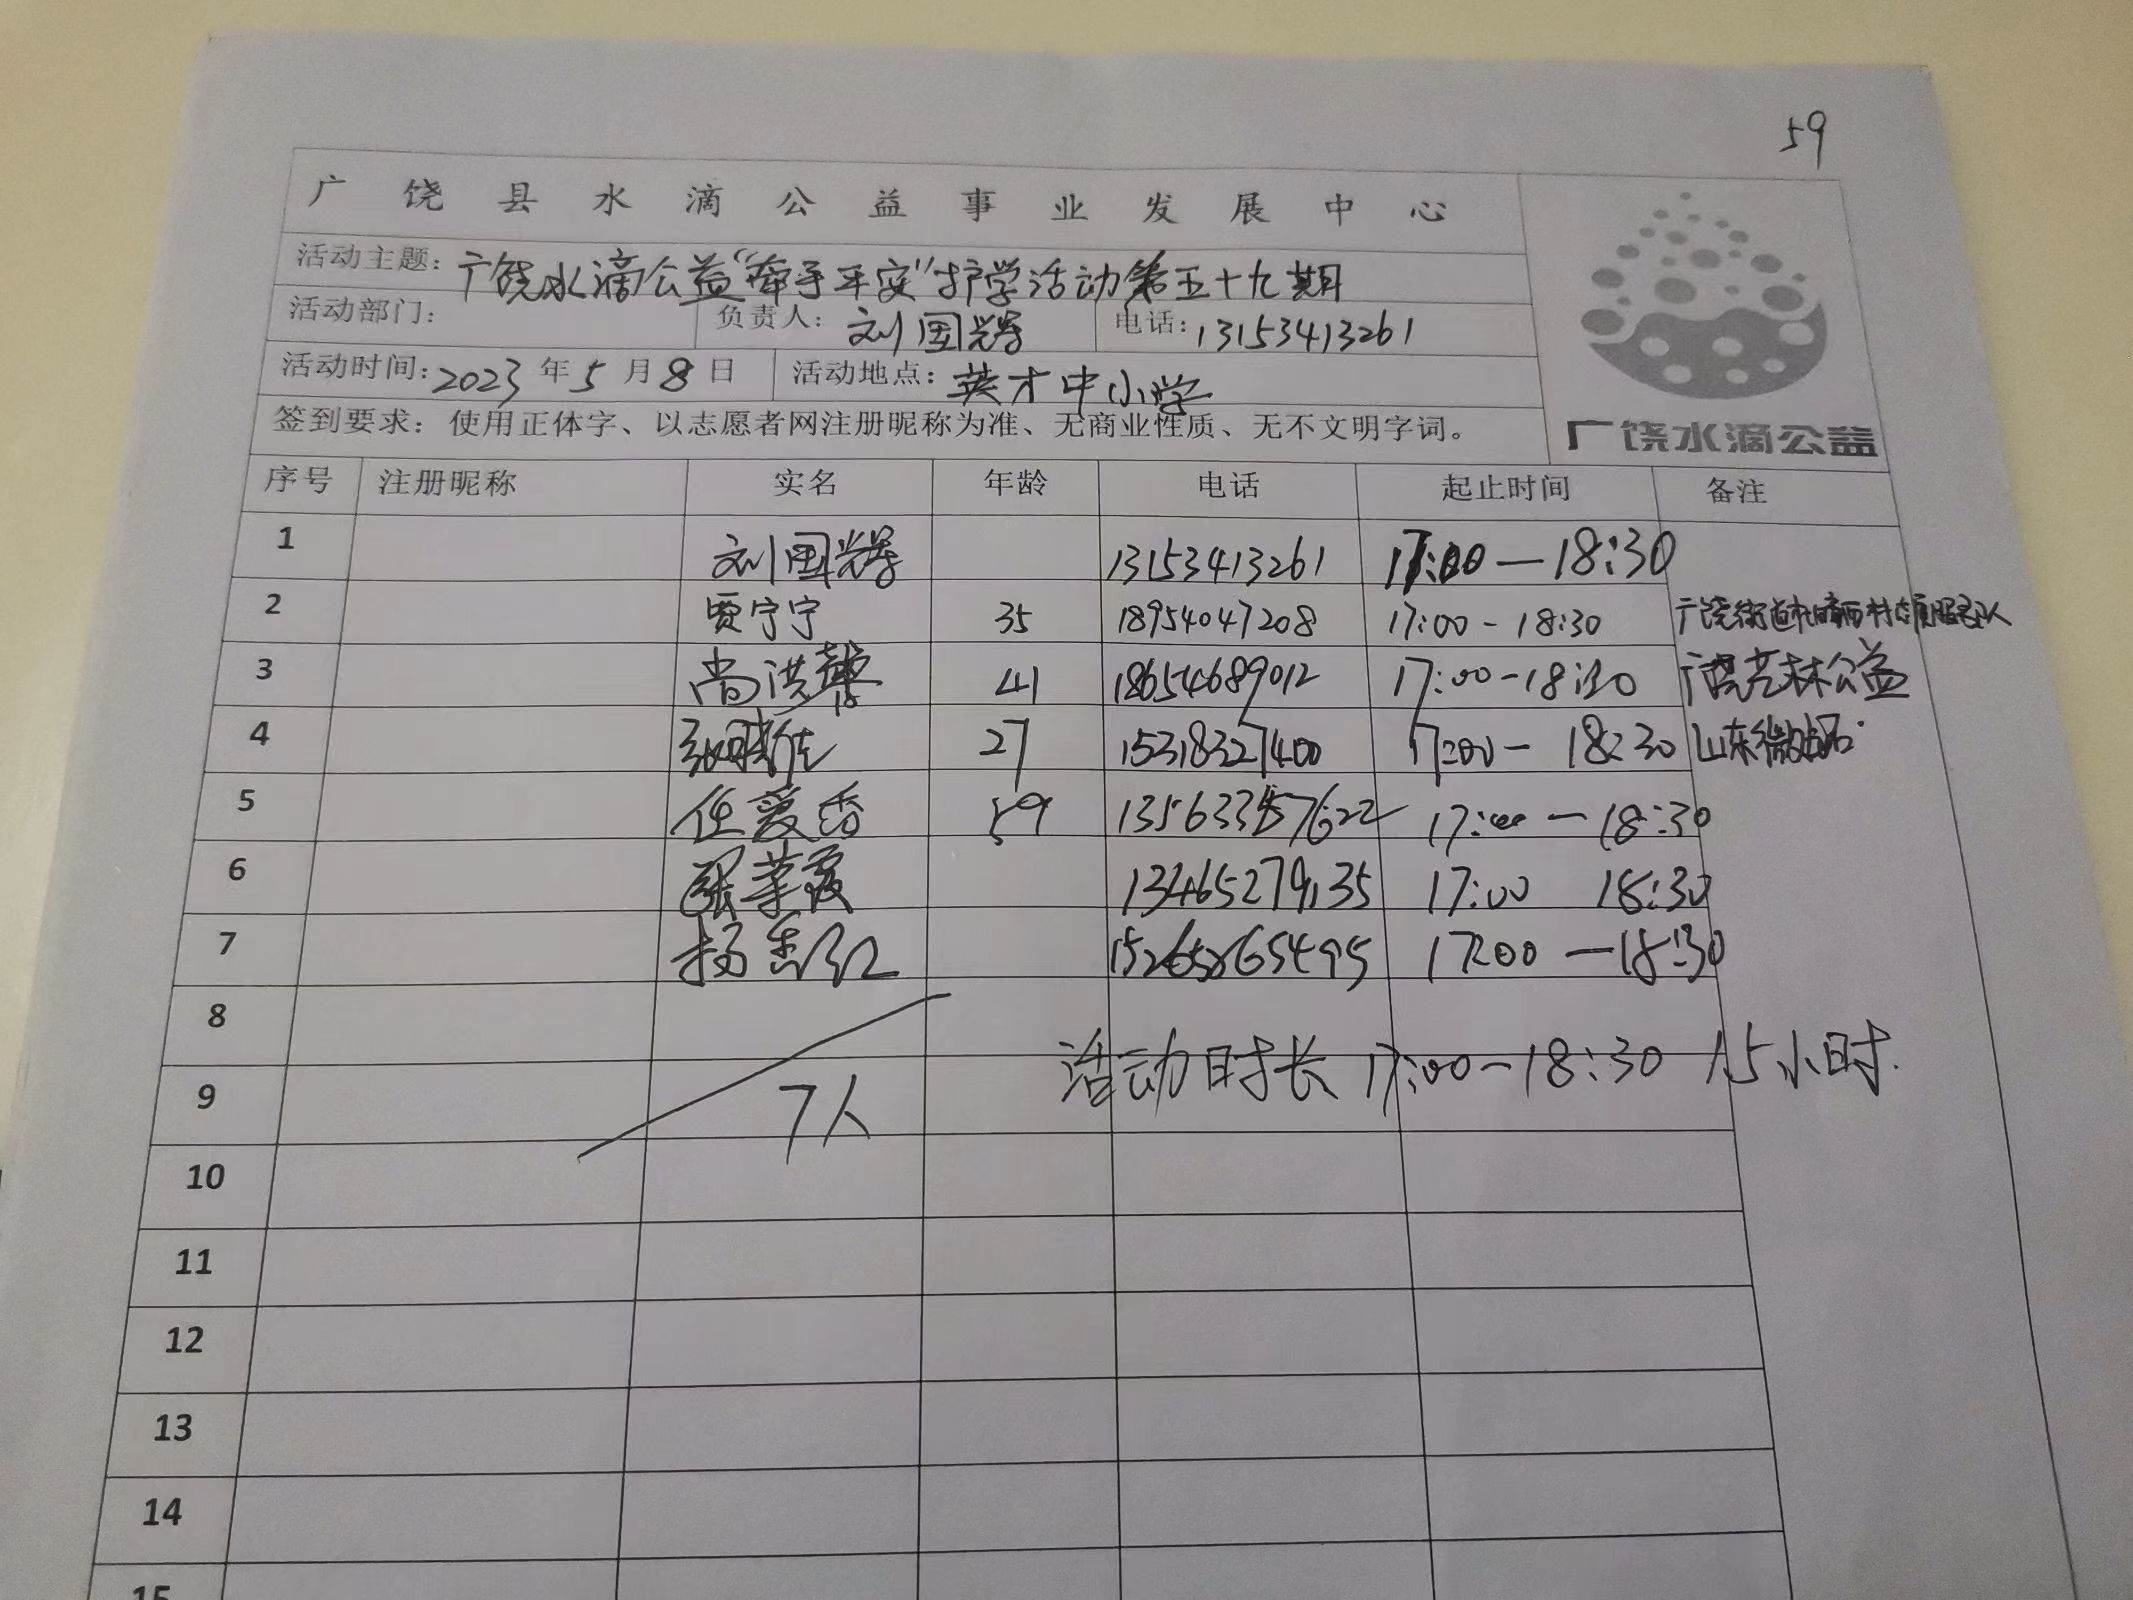 59
广饶县水滴公益事业发展中心
活动主题：广饶水滴公益“牵手平安”护学活动第五十九期
活动部门： 负责人：刘国辉 电话：13153413261
活动时间：2023年5月8日 活动地点：英才中小学
签到要求：使用正体字、以志愿者网注册昵称为准、无商业性质、无不文明字词。
广饶水滴公益
序号 注册昵称 实名 年龄 电话 起止时间 备注
1 刘国辉 13153413261 17:00—18:30
2 贾宁宁 35 18954047208 17:00-18:30 广饶街道
3 尚洪 41 18654689012 17:00-18:30 广饶 公益
4 27 15318327400 17:00-18:30 山东微
5 任爱香 59 17:00—18:30
6 张 霞 13465279135 17:00 18:30
7 杨 红 17:00—18:30
8
活动时长 17:00-18:30 1.5小时.
9 7人
10
11
12
13
14
15